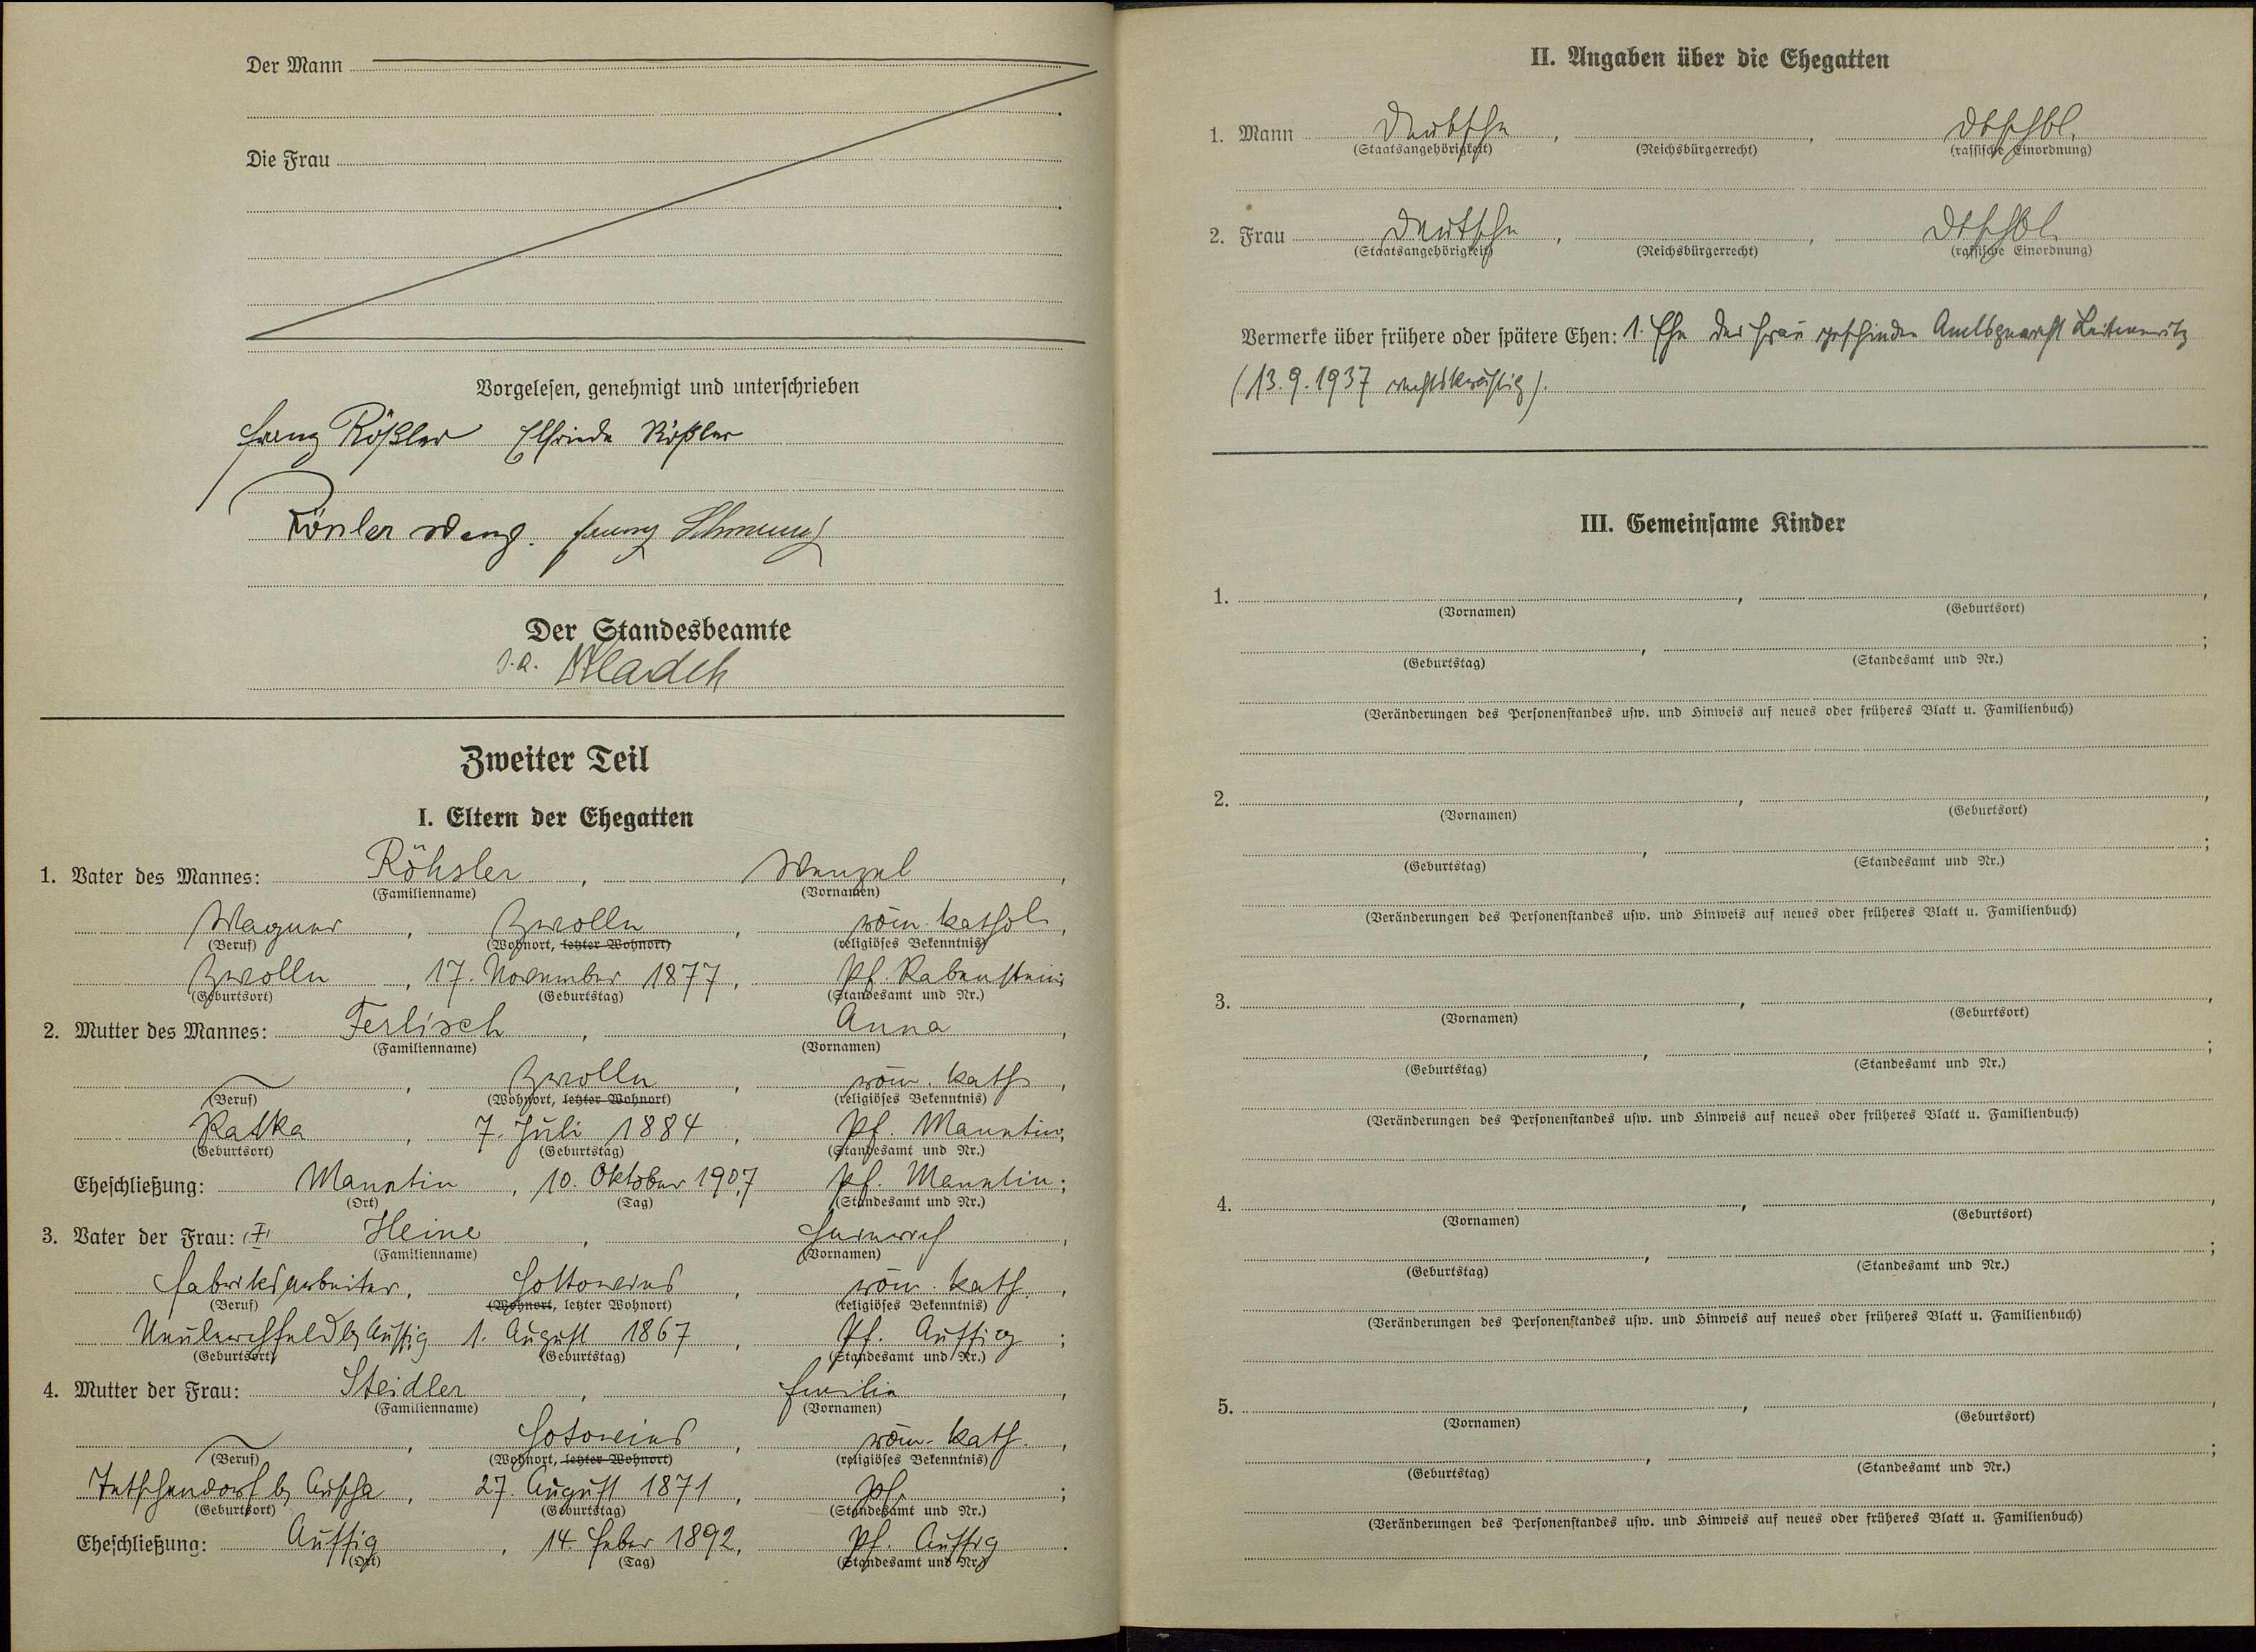 Der Mann
Die Frau
Vorgelesen, genehmigt und unterschrieben
Franz Rößler Elfriede Rößler
Rösler Wenz. Franz
Der Standesbeamte
Zweiter Teil
I. Eltern der Ehegatten
1. Vater des Mannes: Röhsler, Wenzel,
(Familienname) (Vornamen)
Wagner, Zwolln, röm. kathol.,
(Beruf) (Wohnort, letzter Wohnort) (religiöses Bekenntnis)
Zwolln, 17. November 1877, Pf. Rabenstein;
(Geburtsort) (Geburtstag) (Standesamt und Nr.)
2. Mutter des Mannes: Ferlisch, Anna,
(Familienname) (Vornamen)
, Zwolln, röm. kath,
(Beruf) (Wohnort, letzter Wohnort) (religiöses Bekenntnis)
Ratka, 7. Juli 1884, Pf. Manetin;
(Geburtsort) (Geburtstag) (Standesamt und Nr.)
Eheschließung: Manetin, 10. Oktober 1907, Pf. Manetin;
(Ort) (Tag) (Standesamt und Nr.)
3. Vater der Frau: (†) Heine, Heinrich,
(Familienname) (Vornamen)
Fabriksarbeiter, Hottowies, röm. kath.,
(Beruf) (Wohnort, letzter Wohnort) (religiöses Bekenntnis)
Neulerchfeld b/ Aussig 1. August 1867, Pf. Aussig;
(Geburtsort) (Geburtstag) (Standesamt und Nr.)
4. Mutter der Frau: Steidler, Emilie,
(Familienname) (Vornamen)
, Hotowies, röm. kath.,
(Beruf) (Wohnort, letzter Wohnort) (religiöses Bekenntnis)
b/ Auscha, 27. August 1871, Pf. ;
(Geburtsort) (Geburtstag) (Standesamt und Nr.)
Eheschließung: Aussig, 14. Feber 1892, Pf. Aussig.
(Ort) (Tag) (Standesamt und Nr.)
II. Angaben über die Ehegatten
1. Mann Deutsche, , dtschbl.
(Staatsangehörigkeit) (Reichsbürgerrecht) (rassische Einordnung)
2. Frau Deutsche, , dtschbl.
(Staatsangehörigkeit) (Reichsbürgerrecht) (rassische Einordnung)
Vermerke über frühere oder spätere Ehen: 1. Ehe der Frau geschieden Amtsgericht Leitmeritz
(13.9.1937 rechtskräftig).
III. Gemeinsame Kinder
1. , ,
(Vornamen) (Geburtsort)
, ;
(Geburtstag) (Standesamt und Nr.)
(Veränderungen des Personenstandes usw. und Hinweis auf neues oder früheres Blatt u. Familienbuch)
2. , ,
(Vornamen) (Geburtsort)
, ;
(Geburtstag) (Standesamt und Nr.)
(Veränderungen des Personenstandes usw. und Hinweis auf neues oder früheres Blatt u. Familienbuch)
3. , ,
(Vornamen) (Geburtsort)
, ;
(Geburtstag) (Standesamt und Nr.)
(Veränderungen des Personenstandes usw. und Hinweis auf neues oder früheres Blatt u. Familienbuch)
4. , ,
(Vornamen) (Geburtsort)
, ;
(Geburtstag) (Standesamt und Nr.)
(Veränderungen des Personenstandes usw. und Hinweis auf neues oder früheres Blatt u. Familienbuch)
5. , ,
(Vornamen) (Geburtsort)
, ;
(Geburtstag) (Standesamt und Nr.)
(Veränderungen des Personenstandes usw. und Hinweis auf neues oder früheres Blatt u. Familienbuch)